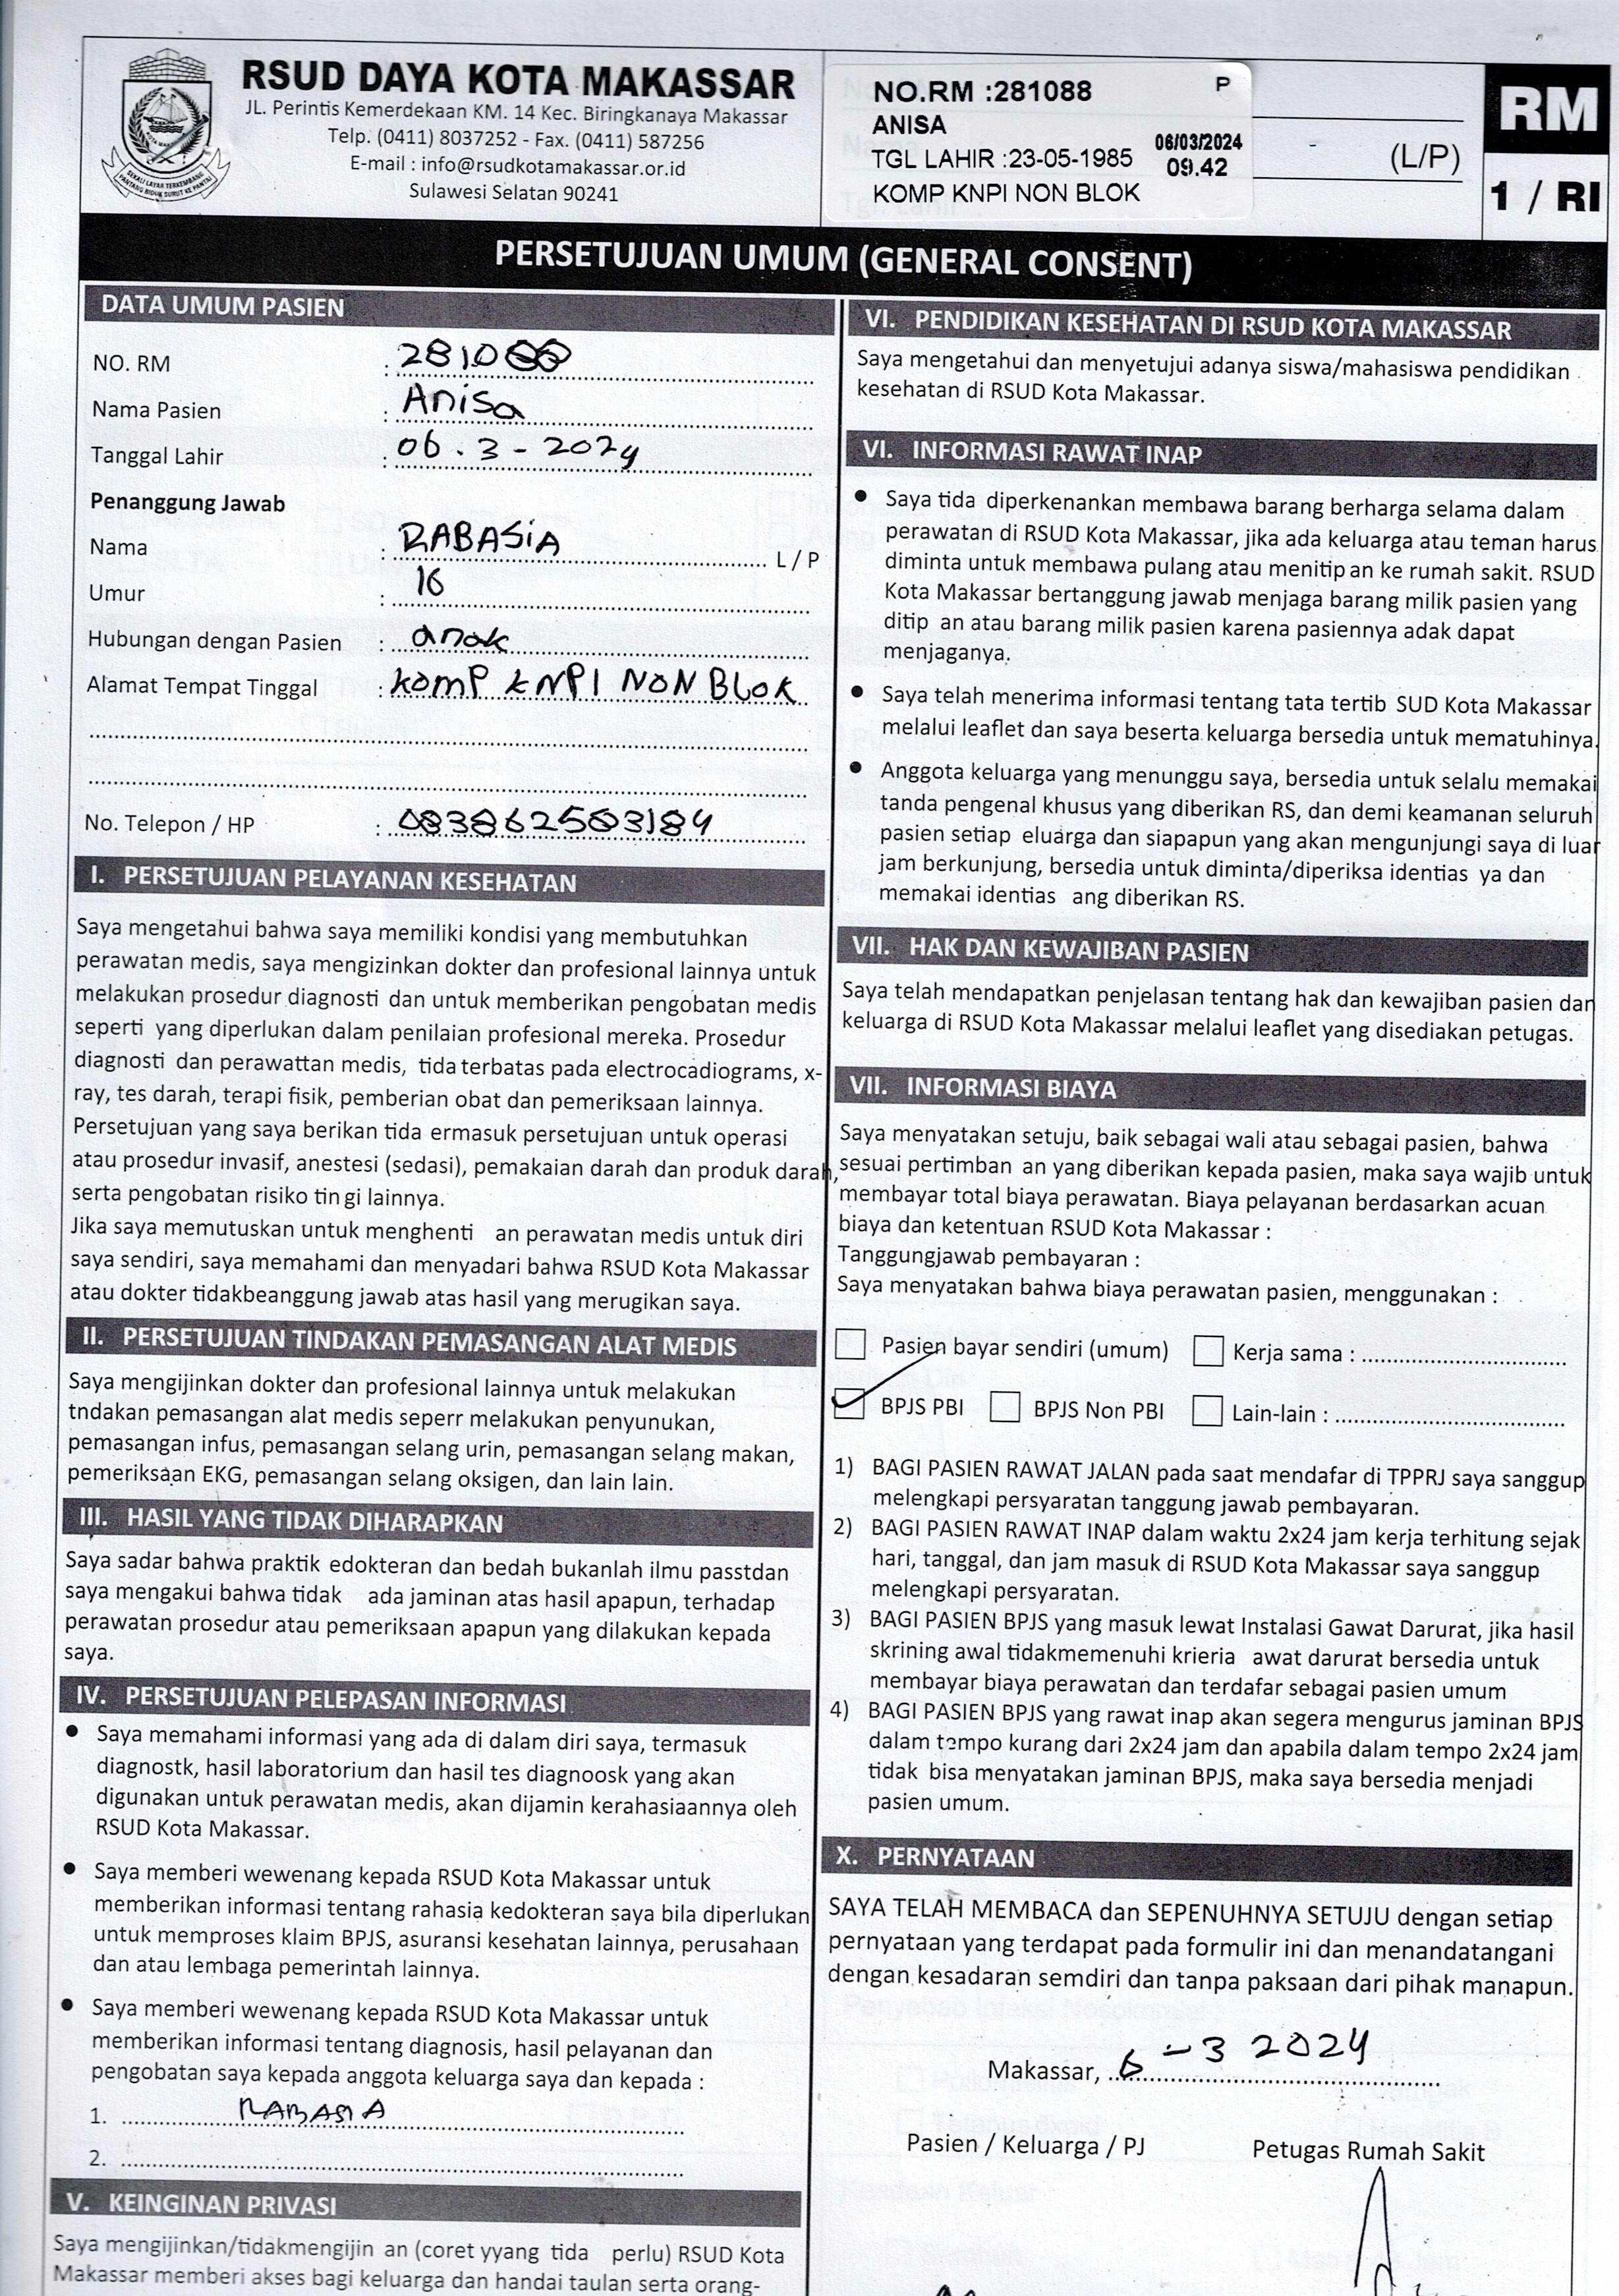 RSUD DAYA KOTA MAKASSAR
JL. Perintis Kemerdekaan KM. 14 Kec. Biringkanaya Makassar
Telp. (0411) 8037252 - Fax. (0411) 587256
E-mail : info@rsudkotamakassar.or.id
Sulawesi Selatan 90241
NO.RM :281088 P
ANISA
TGL LAHIR :23-05-1985 06/03/2024
09.42
KOMP KNPI NON BLOK
(L/P)
RM
1 / RI
PERSETUJUAN UMUM (GENERAL CONSENT)
DATA UMUM PASIEN
NO. RM : 281088
Nama Pasien : Anisa
Tanggal Lahir : 06 . 3 - 2024
Penanggung Jawab
Nama : RABASIA L / P
Umur : 16
Hubungan dengan Pasien : anak
Alamat Tempat Tinggal : KOMP KNPI NON BLOK
No. Telepon / HP : 083862583184
I. PERSETUJUAN PELAYANAN KESEHATAN
Saya mengetahui bahwa saya memiliki kondisi yang membutuhkan
perawatan medis, saya mengizinkan dokter dan profesional lainnya untuk
melakukan prosedur diagnosti dan untuk memberikan pengobatan medis
seperti yang diperlukan dalam penilaian profesional mereka. Prosedur
diagnosti dan perawattan medis, tida terbatas pada electrocadiograms, x-
ray, tes darah, terapi fisik, pemberian obat dan pemeriksaan lainnya.
Persetujuan yang saya berikan tida ermasuk persetujuan untuk operasi
atau prosedur invasif, anestesi (sedasi), pemakaian darah dan produk darah,
serta pengobatan risiko tin gi lainnya.
Jika saya memutuskan untuk menghenti an perawatan medis untuk diri
saya sendiri, saya memahami dan menyadari bahwa RSUD Kota Makassar
atau dokter tidakbeanggung jawab atas hasil yang merugikan saya.
II. PERSETUJUAN TINDAKAN PEMASANGAN ALAT MEDIS
Saya mengijinkan dokter dan profesional lainnya untuk melakukan
tndakan pemasangan alat medis seperr melakukan penyunukan,
pemasangan infus, pemasangan selang urin, pemasangan selang makan,
pemeriksaan EKG, pemasangan selang oksigen, dan lain lain.
III. HASIL YANG TIDAK DIHARAPKAN
Saya sadar bahwa praktik edokteran dan bedah bukanlah ilmu passtdan
saya mengakui bahwa tidak ada jaminan atas hasil apapun, terhadap
perawatan prosedur atau pemeriksaan apapun yang dilakukan kepada
saya.
IV. PERSETUJUAN PELEPASAN INFORMASI
• Saya memahami informasi yang ada di dalam diri saya, termasuk
diagnostk, hasil laboratorium dan hasil tes diagnoosk yang akan
digunakan untuk perawatan medis, akan dijamin kerahasiaannya oleh
RSUD Kota Makassar.
• Saya memberi wewenang kepada RSUD Kota Makassar untuk
memberikan informasi tentang rahasia kedokteran saya bila diperlukan
untuk memproses klaim BPJS, asuransi kesehatan lainnya, perusahaan
dan atau lembaga pemerintah lainnya.
• Saya memberi wewenang kepada RSUD Kota Makassar untuk
memberikan informasi tentang diagnosis, hasil pelayanan dan
pengobatan saya kepada anggota keluarga saya dan kepada :
1. RABASIA
2.
V. KEINGINAN PRIVASI
Saya mengijinkan/tidakmengijin an (coret yyang tida perlu) RSUD Kota
Makassar memberi akses bagi keluarga dan handai taulan serta orang-
VI. PENDIDIKAN KESEHATAN DI RSUD KOTA MAKASSAR
Saya mengetahui dan menyetujui adanya siswa/mahasiswa pendidikan
kesehatan di RSUD Kota Makassar.
VI. INFORMASI RAWAT INAP
• Saya tida diperkenankan membawa barang berharga selama dalam
perawatan di RSUD Kota Makassar, jika ada keluarga atau teman harus
diminta untuk membawa pulang atau menitip an ke rumah sakit. RSUD
Kota Makassar bertanggung jawab menjaga barang milik pasien yang
ditip an atau barang milik pasien karena pasiennya adak dapat
menjaganya.
• Saya telah menerima informasi tentang tata tertib SUD Kota Makassar
melalui leaflet dan saya beserta keluarga bersedia untuk mematuhinya.
• Anggota keluarga yang menunggu saya, bersedia untuk selalu memakai
tanda pengenal khusus yang diberikan RS, dan demi keamanan seluruh
pasien setiap eluarga dan siapapun yang akan mengunjungi saya di luar
jam berkunjung, bersedia untuk diminta/diperiksa identias ya dan
memakai identias ang diberikan RS.
VII. HAK DAN KEWAJIBAN PASIEN
Saya telah mendapatkan penjelasan tentang hak dan kewajiban pasien dan
keluarga di RSUD Kota Makassar melalui leaflet yang disediakan petugas.
VII. INFORMASI BIAYA
Saya menyatakan setuju, baik sebagai wali atau sebagai pasien, bahwa
sesuai pertimban an yang diberikan kepada pasien, maka saya wajib untuk
membayar total biaya perawatan. Biaya pelayanan berdasarkan acuan
biaya dan ketentuan RSUD Kota Makassar :
Tanggungjawab pembayaran :
Saya menyatakan bahwa biaya perawatan pasien, menggunakan :
Pasien bayar sendiri (umum) Kerja sama :
BPJS PBI BPJS Non PBI Lain-lain :
1) BAGI PASIEN RAWAT JALAN pada saat mendafar di TPPRJ saya sanggup
melengkapi persyaratan tanggung jawab pembayaran.
2) BAGI PASIEN RAWAT INAP dalam waktu 2x24 jam kerja terhitung sejak
hari, tanggal, dan jam masuk di RSUD Kota Makassar saya sanggup
melengkapi persyaratan.
3) BAGI PASIEN BPJS yang masuk lewat Instalasi Gawat Darurat, jika hasil
skrining awal tidakmemenuhi krieria awat darurat bersedia untuk
membayar biaya perawatan dan terdafar sebagai pasien umum
4) BAGI PASIEN BPJS yang rawat inap akan segera mengurus jaminan BPJS
dalam tempo kurang dari 2x24 jam dan apabila dalam tempo 2x24 jam
tidak bisa menyatakan jaminan BPJS, maka saya bersedia menjadi
pasien umum.
X. PERNYATAAN
SAYA TELAH MEMBACA dan SEPENUHNYA SETUJU dengan setiap
pernyataan yang terdapat pada formulir ini dan menandatangani
dengan kesadaran semdiri dan tanpa paksaan dari pihak manapun.
Makassar, 6 - 3 2024
Pasien / Keluarga / PJ Petugas Rumah Sakit